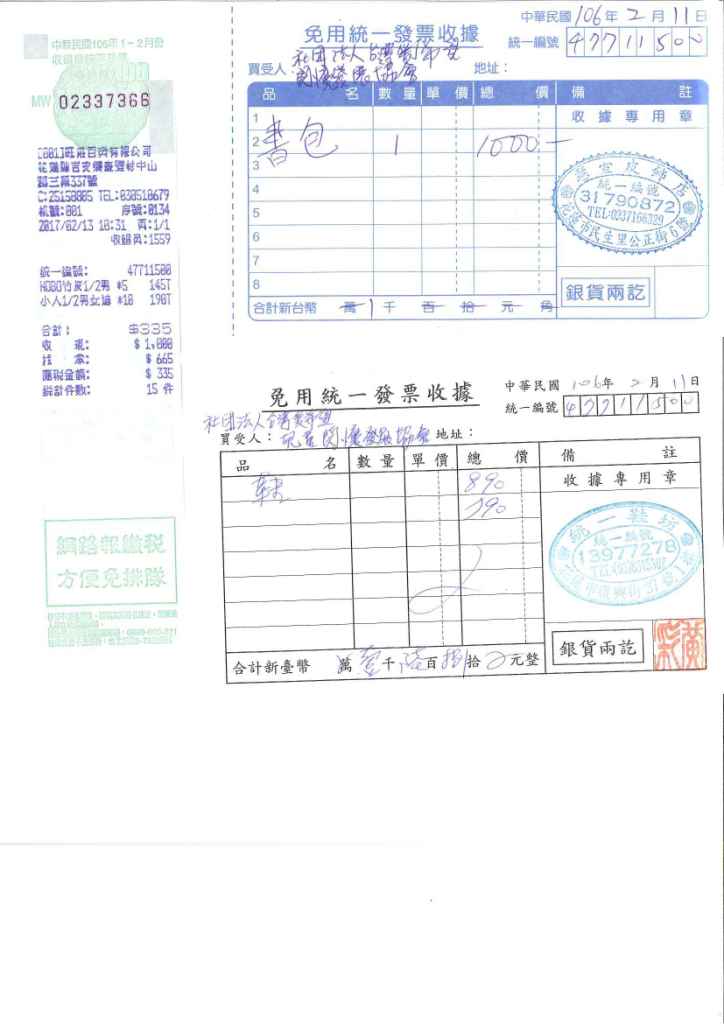 中華民國106年1-2月份
MW 02337366
[001]旺旺百貨有限公司
花蓮縣吉安鄉
路三段337號
C:25150805 TEL:038510679
機號:001 序號:0134
2017/02/13 10:31 頁:1/1
收銀員:1559
統一編號: 47711500
HODO竹炭1/2男 #5 145T
小人1/2男女 #10 190T
合計: $335
收 現: $1,000
找 零: $ 665
應稅金額: $ 335
銷計件數: 15 件
網路報繳稅
方便免排隊
免用統一發票收據
中華民國106年2月11日
統一編號 47711500
買受人: 社团法人台灣 地址:
關懷發展協會
品名 數量 單價 總價 備註
收據專用章
1
2 書包 1 1000.-
3
4
5
6
7
8
皮飾店
統一編號
31790872
花蓮市民生里公正街6號
合計新台幣 萬 1 千 百 拾 元 角
銀貨兩訖
免用統一發票收據
中華民國106年2月11日
統一編號 47711500
社团法人台灣
買受人: 兒童關懷發展協會 地址:
品名 數量 單價 總價 備註
收據專用章
鞋 890
790
統一鞋坊
統一編號
13977278
合計新臺幣 萬 壹 千 陸 百 捌 拾 元整
銀貨兩訖